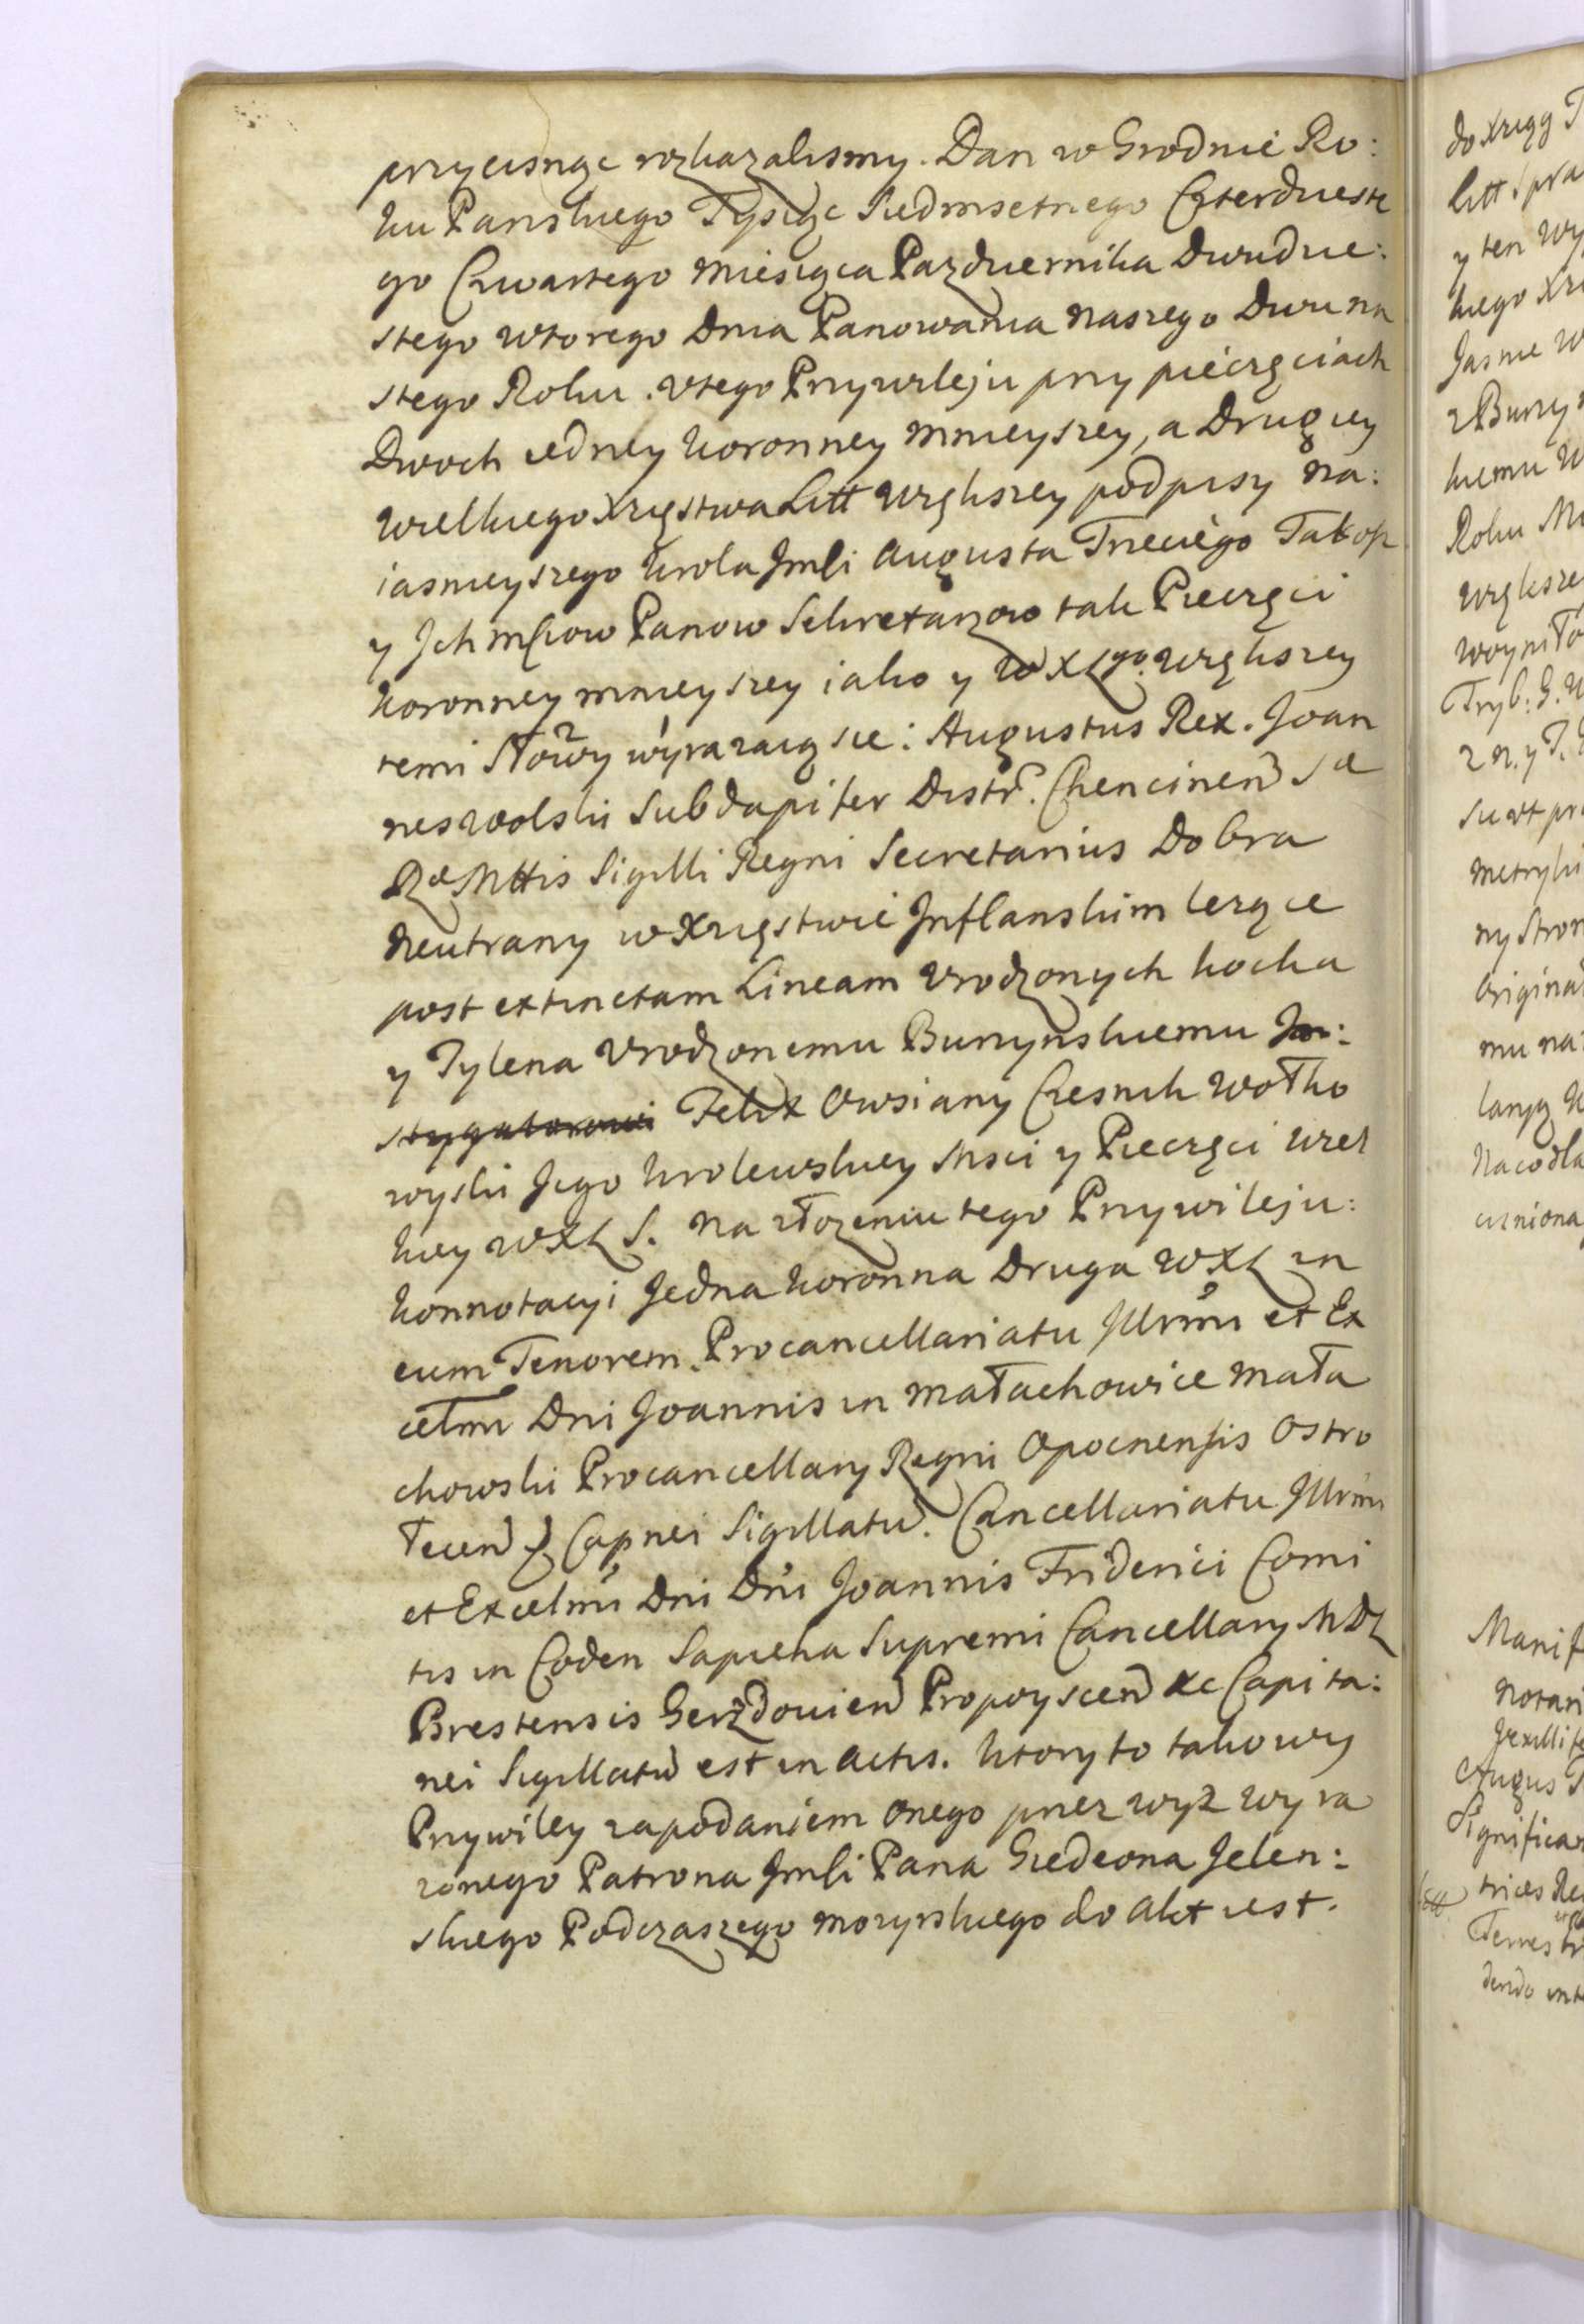 przycisnąc rozkazalismy. Dan w Grodnie Ro:
ku Panskiego Tysiąc Siedmsetnego Czterdzieste
go Czwartego miesiąca Pazdziernika Dwudzie:
stego wtorego Dnia Panowania naszego Dwuna
stego Roku. v tego Przywileju przy pieczęciach
Dwoch iedney koronney mnieyszey, a Drugiey
wielkiego Xręstwa Litt większey podpisy na:
iasnieyszego krola Jmsci Augusta Trzeciego
y Ich msciow Panow Sekretarzow tak Pieczęci
koronney mnieyszey iako y W X Lgo. większey
temi słowy wyrazaią się: Augustus Rex. Joan
nes wolski Subdapifer Distr. Chencinen S ae
R ae Mttis Sigilli Regni Secretarius Dobra
neutrany w Xręstwie Inflanskim lezące
post extinctam Lineam vrodzonych kocka
y Tylena vrodzonemu Burzynskiemu In:
stygatorowi Felix Owsiany Czesnik wołko
wyski Jego krolewskiey Msci y Pieczęci wiel
kiey W X L S. na złozeniu tego Przywileju:
konnotacyi Jedna koronna Druga W X L in
eum Tenorem. Procancellariatu Illrmi et Ex
cellmi Dni Joannis in małachowice mała
chowski Procancellary Regni Opocnensis Ostro
łecen & Capnei Sigillatu. Cancellariatu Illrmi
et Excelmi Dni Dni Joannis Friderici Comi
tis in Coden Sapieha Supremi Cancellary M D L
Brestensis Gerzdovien Propoyscen &c Capita:
nei Sigillatu est in actis. ktory to takowy
Przywiley zapodaniem onego przez wyz wyra
zonego Patrona Jmsci Pana Giedeona Jelen:
skiego Podczaszego mozyrskiego do akt iest.
do xrąg
Litt spra
y ten wy
kiego
Jasnie w
z Burzy
kiemu
Roku
większe
woyniło
Tryb: G.
z n. y
metryki
ny Stron
Original
mu na
laryą
na co dla
czniona
Manif
notari
Augus
Significa
trices
Terrestr
dendo